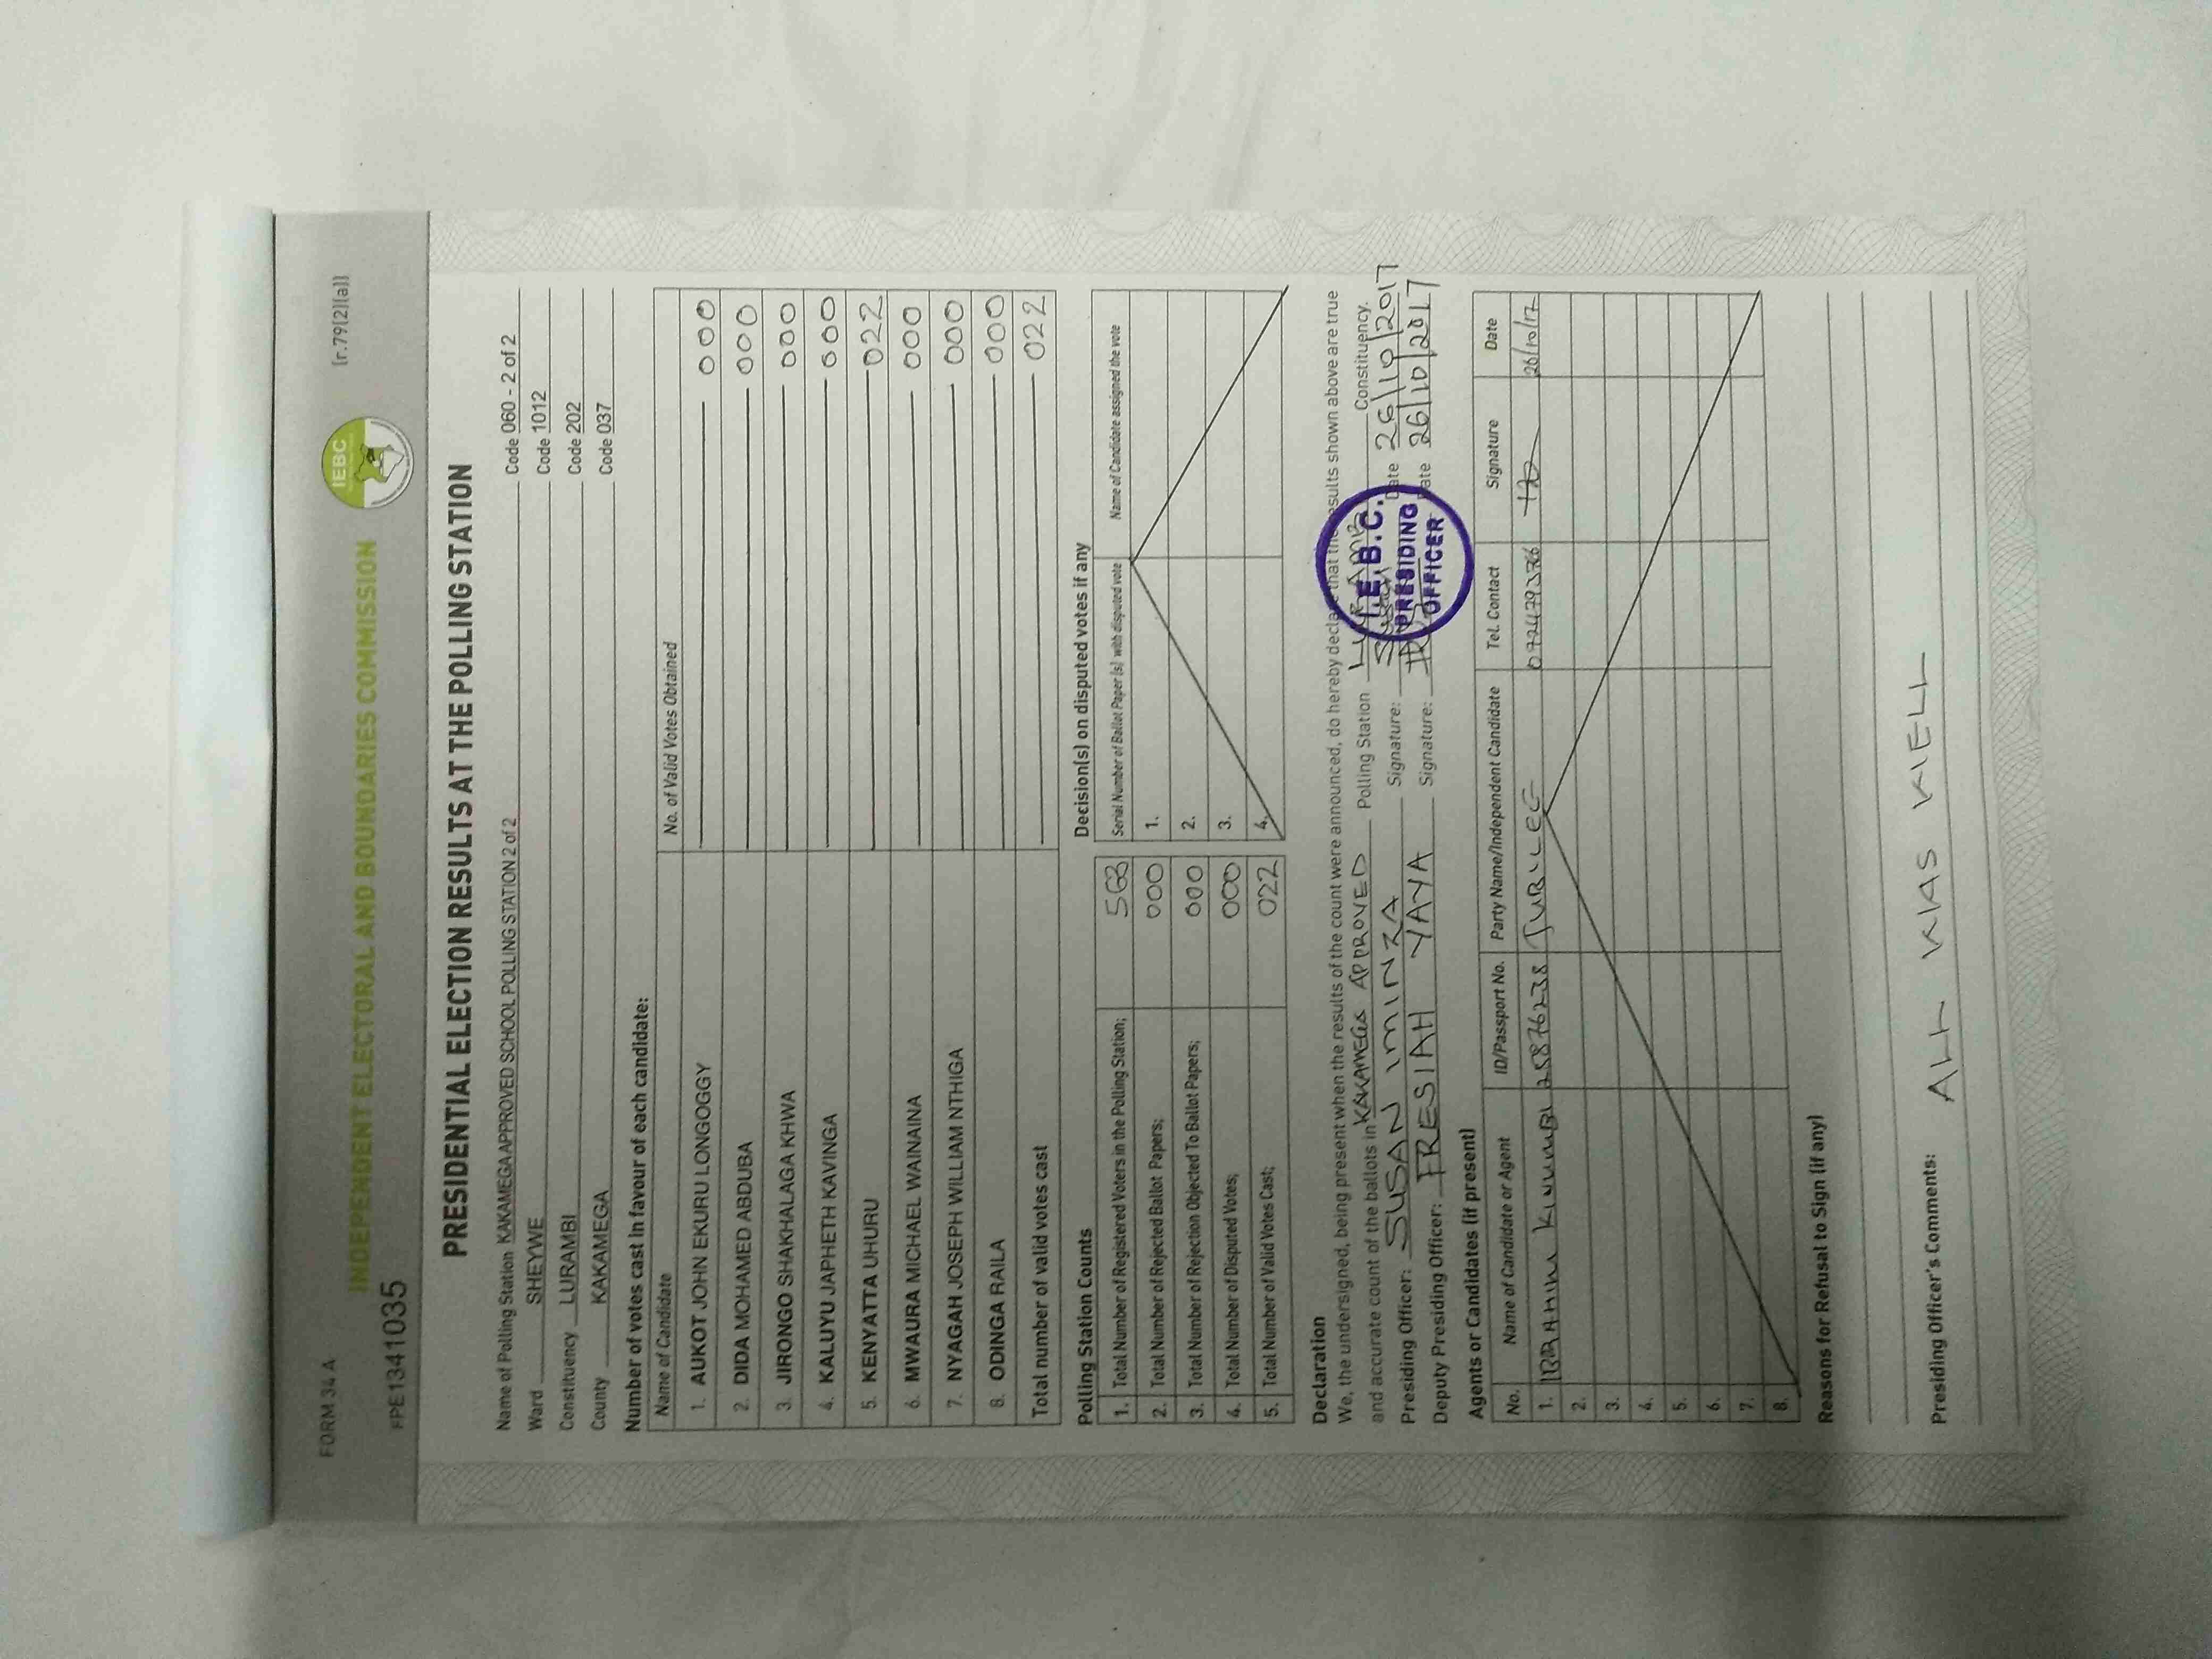 FORM 34 A
(r.79(2)(a))
INDEPENDENT ELECTORAL AND BOUNDARIES COMMISSION
IEBC
FPE1341035
PRESIDENTIAL ELECTION RESULTS AT THE POLLING STATION
Name of Polling Station KAKAMEGA APPROVED SCHOOL POLLING STATION 2 of 2 Code 060 - 2 of 2
Ward SHEYWE Code 1012
Constituency LURAMBI Code 202
County KAKAMEGA Code 037
Number of votes cast in favour of each candidate:
Name of Candidate No. of Valid Votes Obtained
1. AUKOT JOHN EKURU LONGOGGY 000
2. DIDA MOHAMED ABDUBA 000
3. JIRONGO SHAKHALAGA KHWA 000
4. KALUYU JAPHETH KAVINGA 000
5. KENYATTA UHURU 022
6. MWAURA MICHAEL WAINAINA 000
7. NYAGAH JOSEPH WILLIAM NTHIGA 000
8. ODINGA RAILA 000
Total number of valid votes cast 022
Polling Station Counts
1. Total Number of Registered Voters in the Polling Station;
2. Total Number of Rejected Ballot Papers; 000
3. Total Number of Rejection Objected To Ballot Papers; 000
4. Total Number of Disputed Votes; 000
5. Total Number of Valid Votes Cast; 022
Decision(s) on disputed votes if any
Serial Number of Ballot Paper (s) with disputed vote Name of Candidate assigned the vote
1.
2.
3.
4.
Declaration
We, the undersigned, being present when the results of the count were announced, do hereby declare that the results shown above are true
and accurate count of the ballots in KAKAMEGA APPROVED Polling Station LURAMBI Constituency.
Presiding Officer: SUSAN IMINZA Signature: Date 26/10/2017
Deputy Presiding Officer: FRESIAH YAYA Signature: Date 26/10/2017
I.E.B.C.
PRESIDING
OFFICER
Agents or Candidates (if present)
No. Name of Candidate or Agent ID/Passport No. Party Name/Independent Candidate Tel. Contact Signature Date
1. IBRAHIM 25876238 JUBILEE 26/10/17
2.
3.
4.
5.
6.
7.
8.
Reasons for Refusal to Sign (if any)
Presiding Officer's Comments: ALL WAS WELL